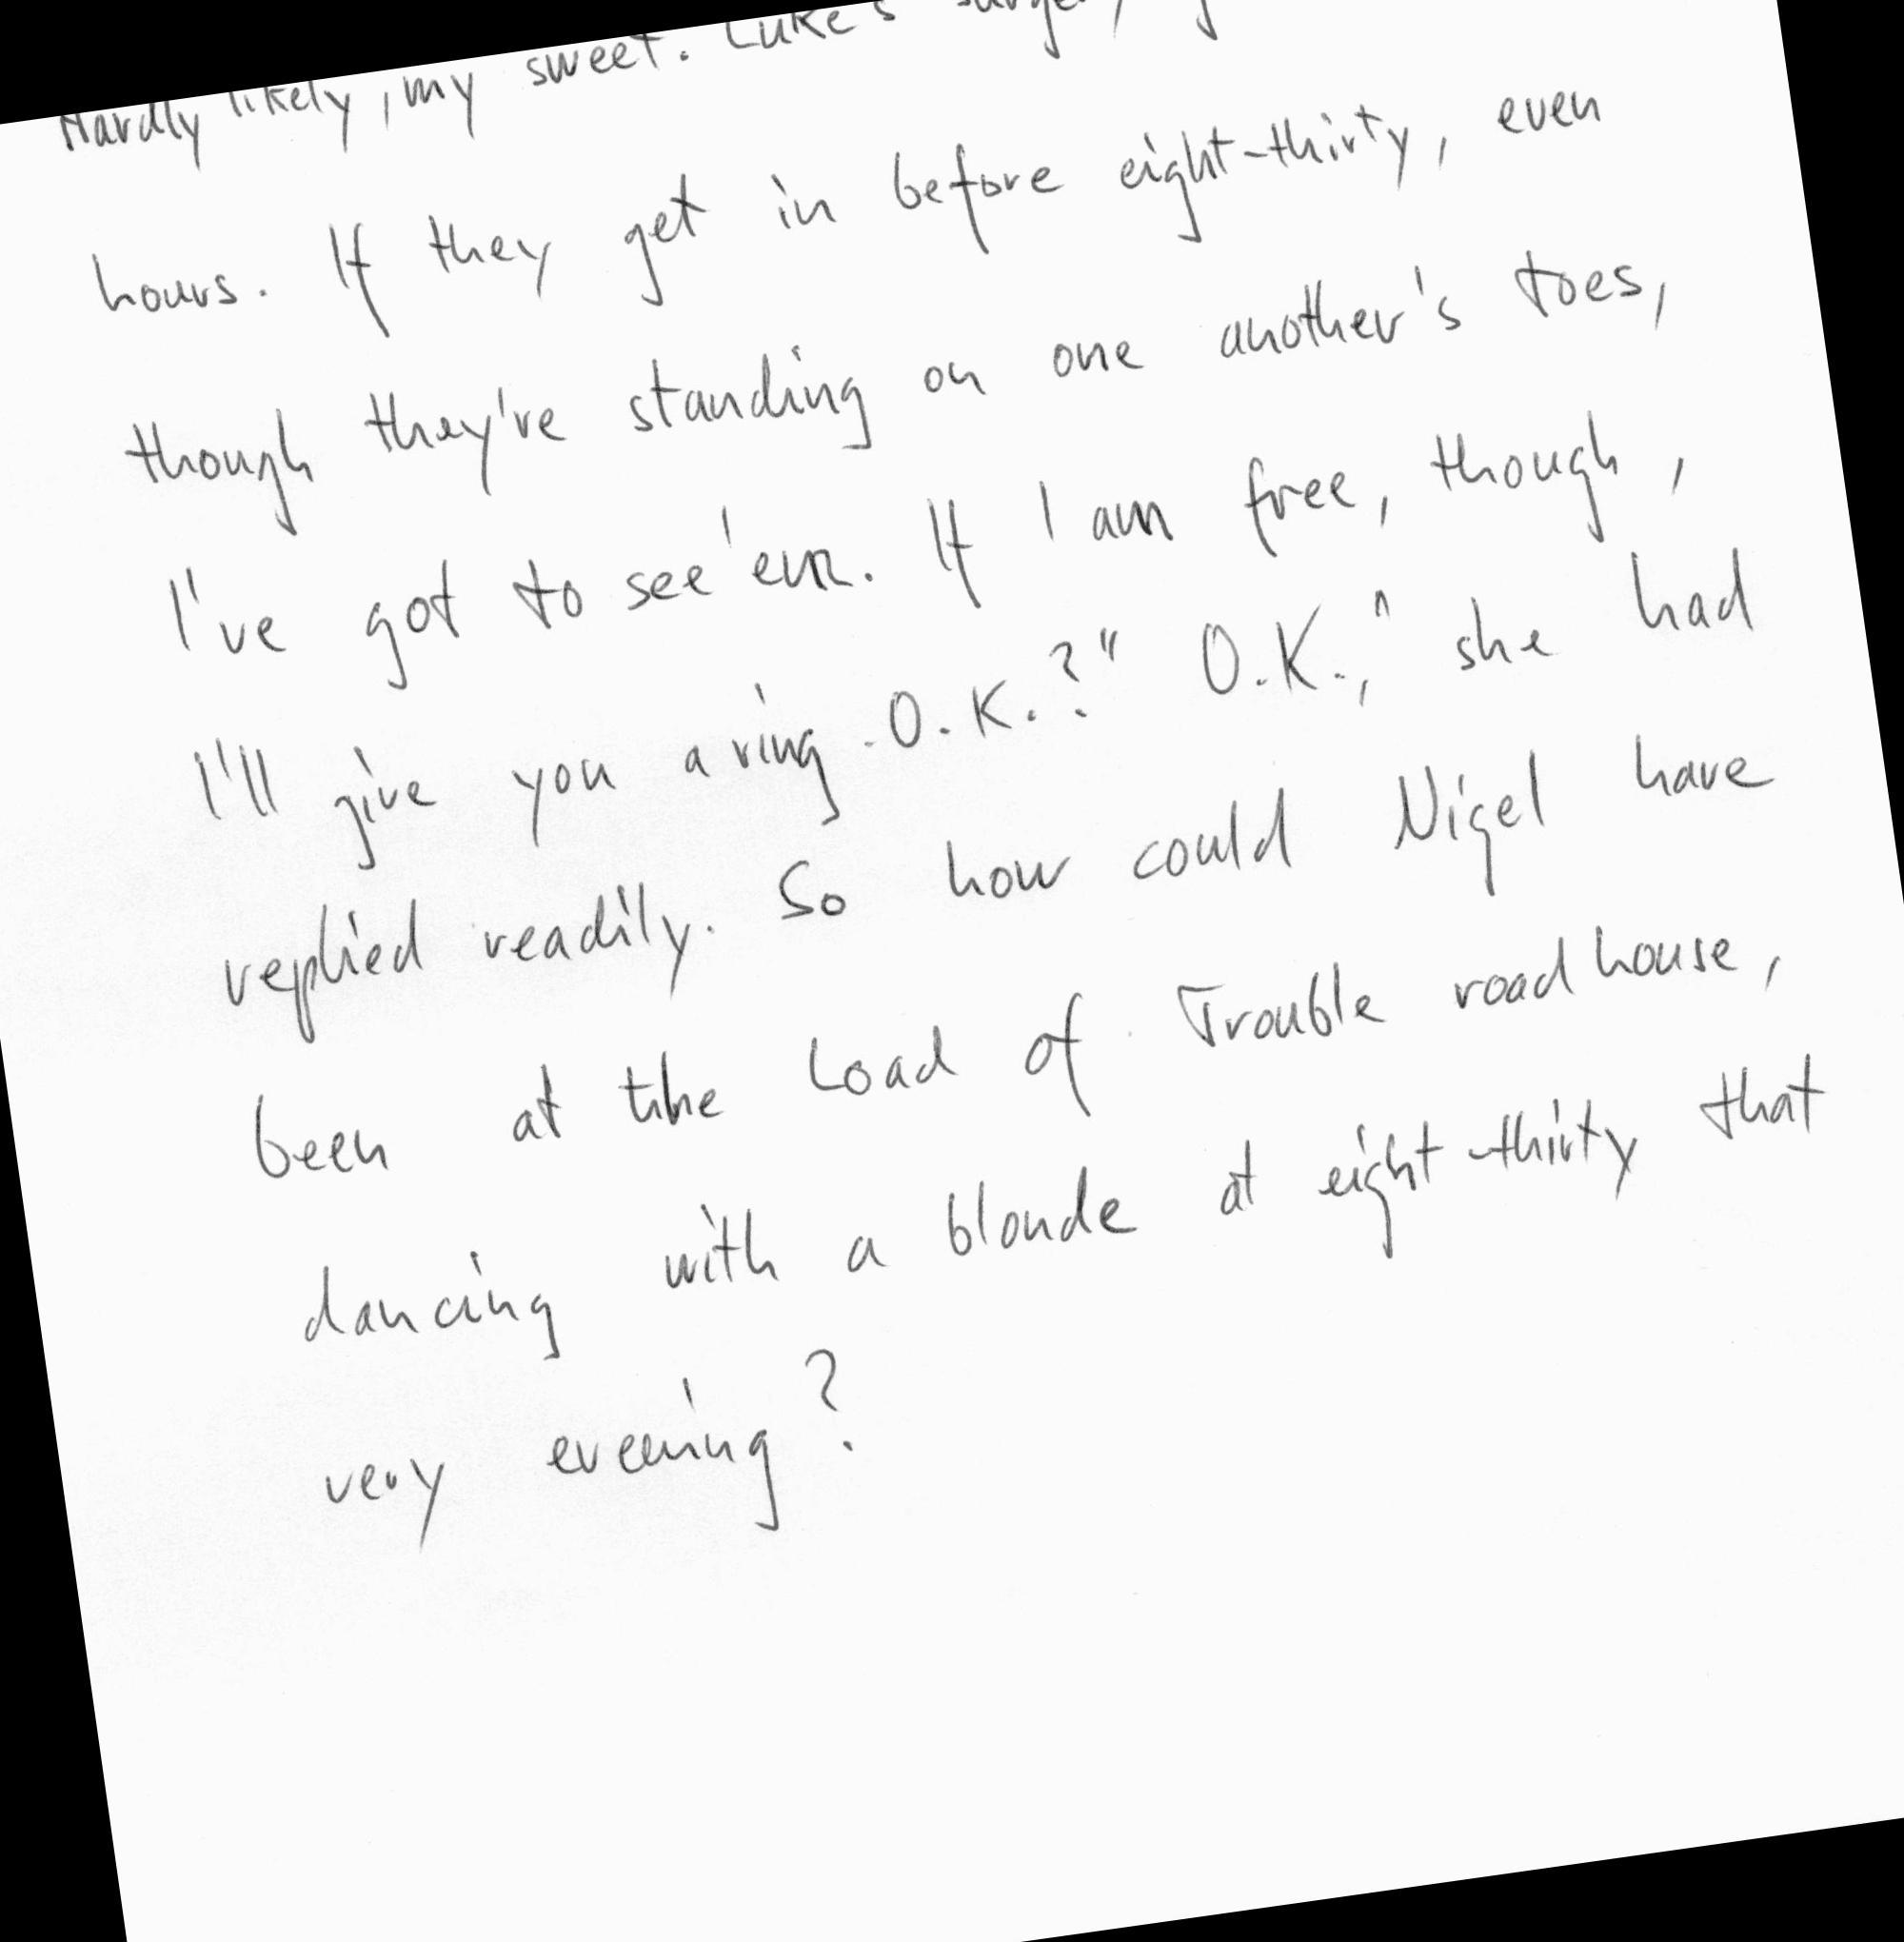 Hardly likely, my sweet. Luke's
hours. If they get in before eight-thirty, even
though they're standing on one another's toes,
I've got to see 'em. If I am free, though,
I'll give you a ring. O.K.?" O.K.," she had
replied readily. So how could Nigel have
been at the Load of Trouble roadhouse,
dancing with a blonde at eight-thirty that
very evening?